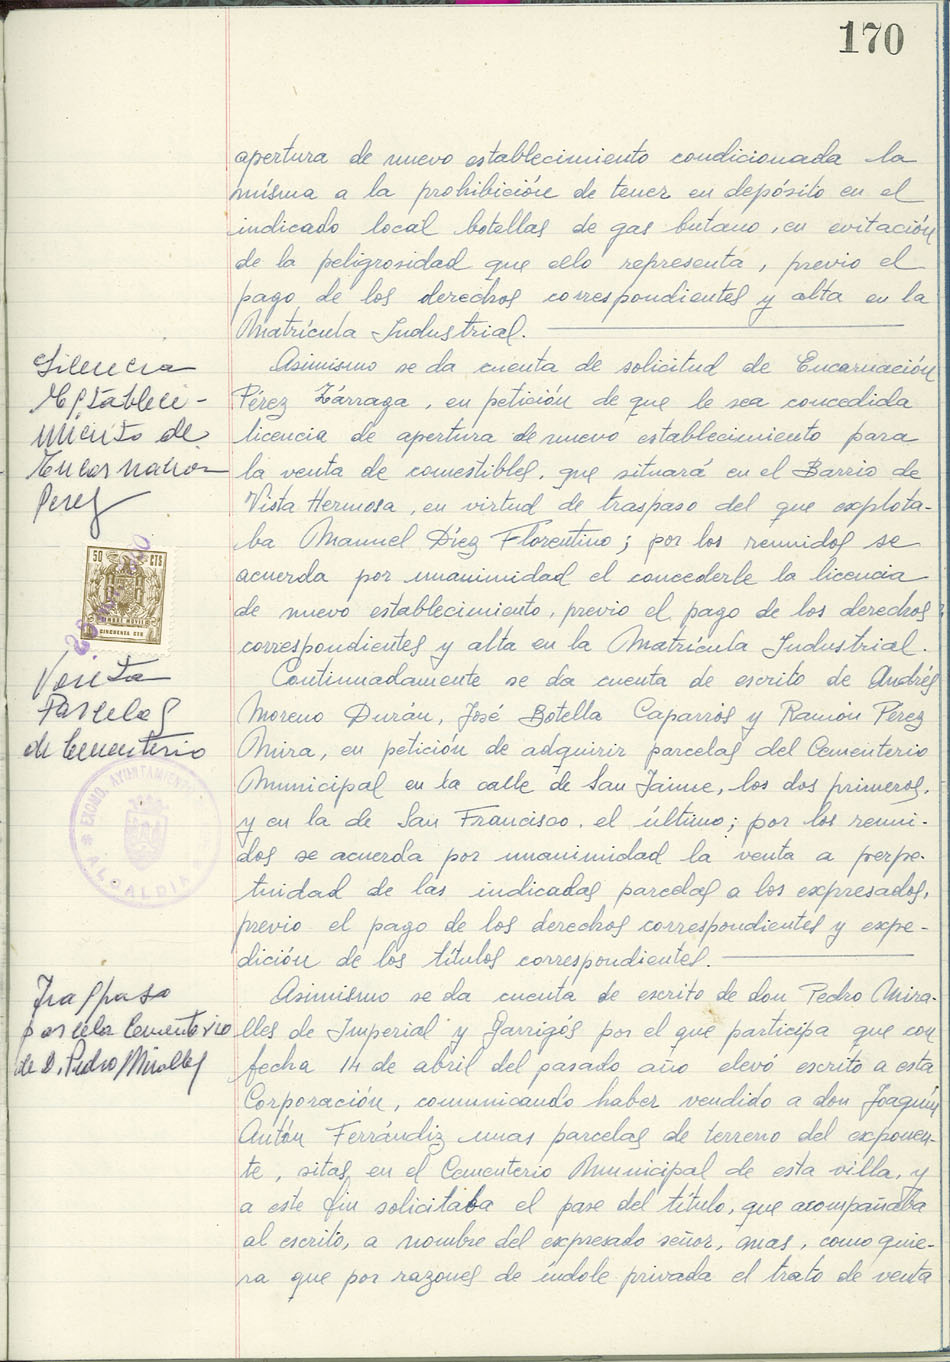 170
apertura de nuevo establecimiento condicionada la
misma a la prohibición de tener en depósito en el
indicado local botellas de gas butano, en evitación
de la peligrosidad que ello representa, previo el
pago de los derechos correspondientes y alta en la
Matrícula Industrial.
Licencia
Estableci-
miento de
Encarnación
Perez
Asimismo se da cuenta de solicitud de Encarnación
Pérez Zárraga, en petición de que le sea concedida
licencia de apertura de nuevo establecimiento para
la venta de comestibles, que situará en el Barrio de
Vista Hermosa, en virtud de traspaso del que explota-
ba Manuel Díez Florentino; por los reunidos se
acuerda por unanimidad el concederle la licencia
de nuevo establecimiento, previo el pago de los derechos
correspondientes y alta en la Matrícula Industrial.
50 CTS
TIMBRE MOVIL
CINCUENTA CTS
Venta
Parcelas
de Cementerio
Continuadamente se da cuenta de escrito de Andrés
Moreno Durán, José Botella Caparrós y Ramón Pérez
Mira, en petición de adquirir parcelas del Cementerio
Municipal en la calle de San Jaime, los dos primeros,
y en la de San Francisco, el último; por los reuni-
dos se acuerda por unanimidad la venta a perpe-
tuidad de las indicadas parcelas a los expresados,
previo el pago de los derechos correspondientes y expe-
dición de los títulos correspondientes.
EXCMO. AYUNTAMIENTO
ALCALDIA
Traspaso
parcela Cementerio
de D. Pedro Miralles
Asimismo se da cuenta de escrito de don Pedro Mira-
lles de Imperial y Garrigós por el que participa que con
fecha 14 de abril del pasado año elevó escrito a esta
Corporación, comunicando haber vendido a don Joaquín
Antón Ferrándiz unas parcelas de terreno del exponen-
te, sitas en el Cementerio Municipal de esta villa, y
a este fin solicitaba el pase del título, que acompañaba
al escrito, a nombre del expresado señor, mas, como quie-
ra que por razones de índole privada el trato de venta